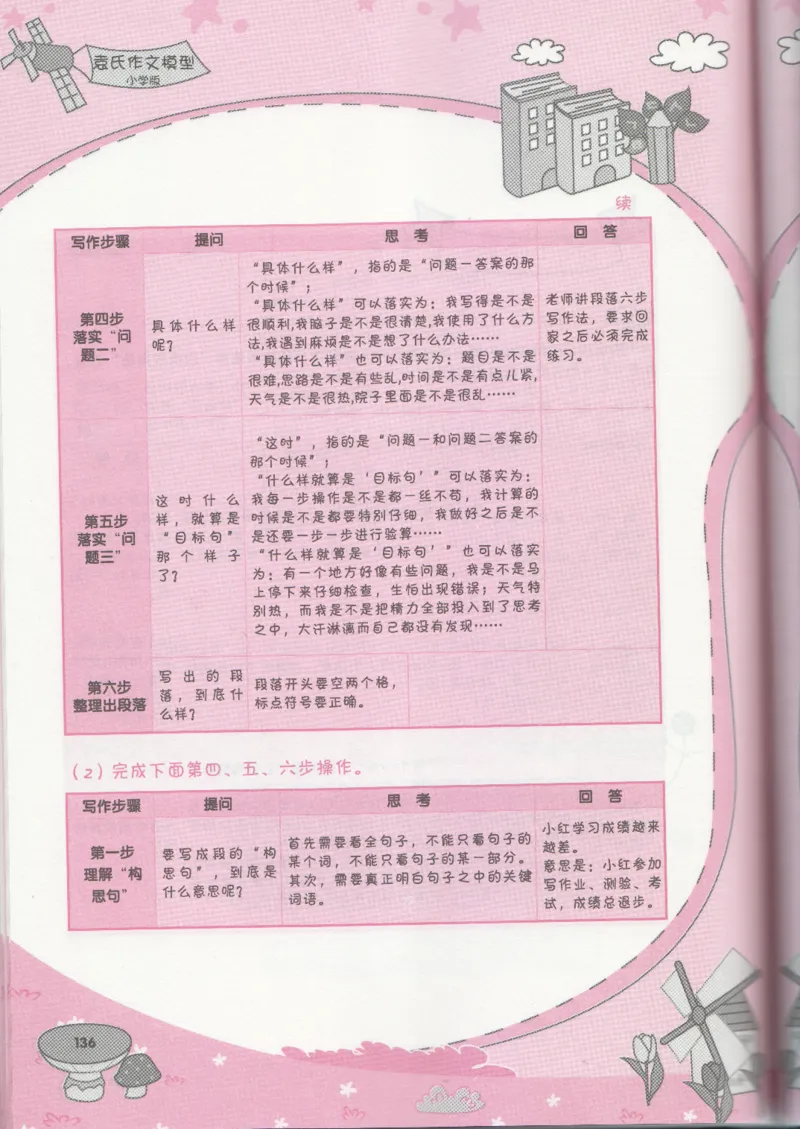 袁氏作文模型
小学版
续
写作步骤 提问 思 考 回 答
第四步
落实“问
题二”
具体什么样
呢?
“具体什么样”,指的是“问题一答案的那
个时候”;
“具体什么样”可以落实为:我写得是不是
很顺利,我脑子是不是很清楚,我使用了什么方
法,我遇到麻烦是不是想了什么办法……
“具体什么样”也可以落实为:题目是不是
很难,思路是不是有些乱,时间是不是有点儿紧,
天气是不是很热,院子里面是不是很乱……
老师讲段落六步
写作法,要求回
家之后必须完成
练习。
第五步
落实“问
题三”
这时什么
样,就算是
“目标句”
那个样子
了?
“这时”,指的是“问题一和问题二答案的
那个时候”;
“什么样就算是‘目标句’”可以落实为:
我每一步操作是不是都一丝不苟,我计算的
时候是不是都要特别仔细,我做好之后是不
是还要一步一步进行验算……
“什么样就算是‘目标句’”也可以落实
为:有一个地方好像有些问题,我是不是马
上停下来仔细检查,生怕出现错误;天气特
别热,而我是不是把精力全部投入到了思考
之中,大汗淋漓而自己都没有发现……
第六步
整理出段落
写出的段
落,到底什
么样?
段落开头要空两个格,
标点符号要正确。
(2)完成下面第四、五、六步操作。
写作步骤 提问 思 考 回 答
第一步
理解“构
思句”
要写成段的“构
思句”,到底是
什么意思呢?
首先需要看全句子,不能只看句子的
某个词,不能只看句子的某一部分。
其次,需要真正明白句子之中的关键
词语。
小红学习成绩越来
越差。
意思是:小红参加
写作业、测验、考
试,成绩总退步。
136